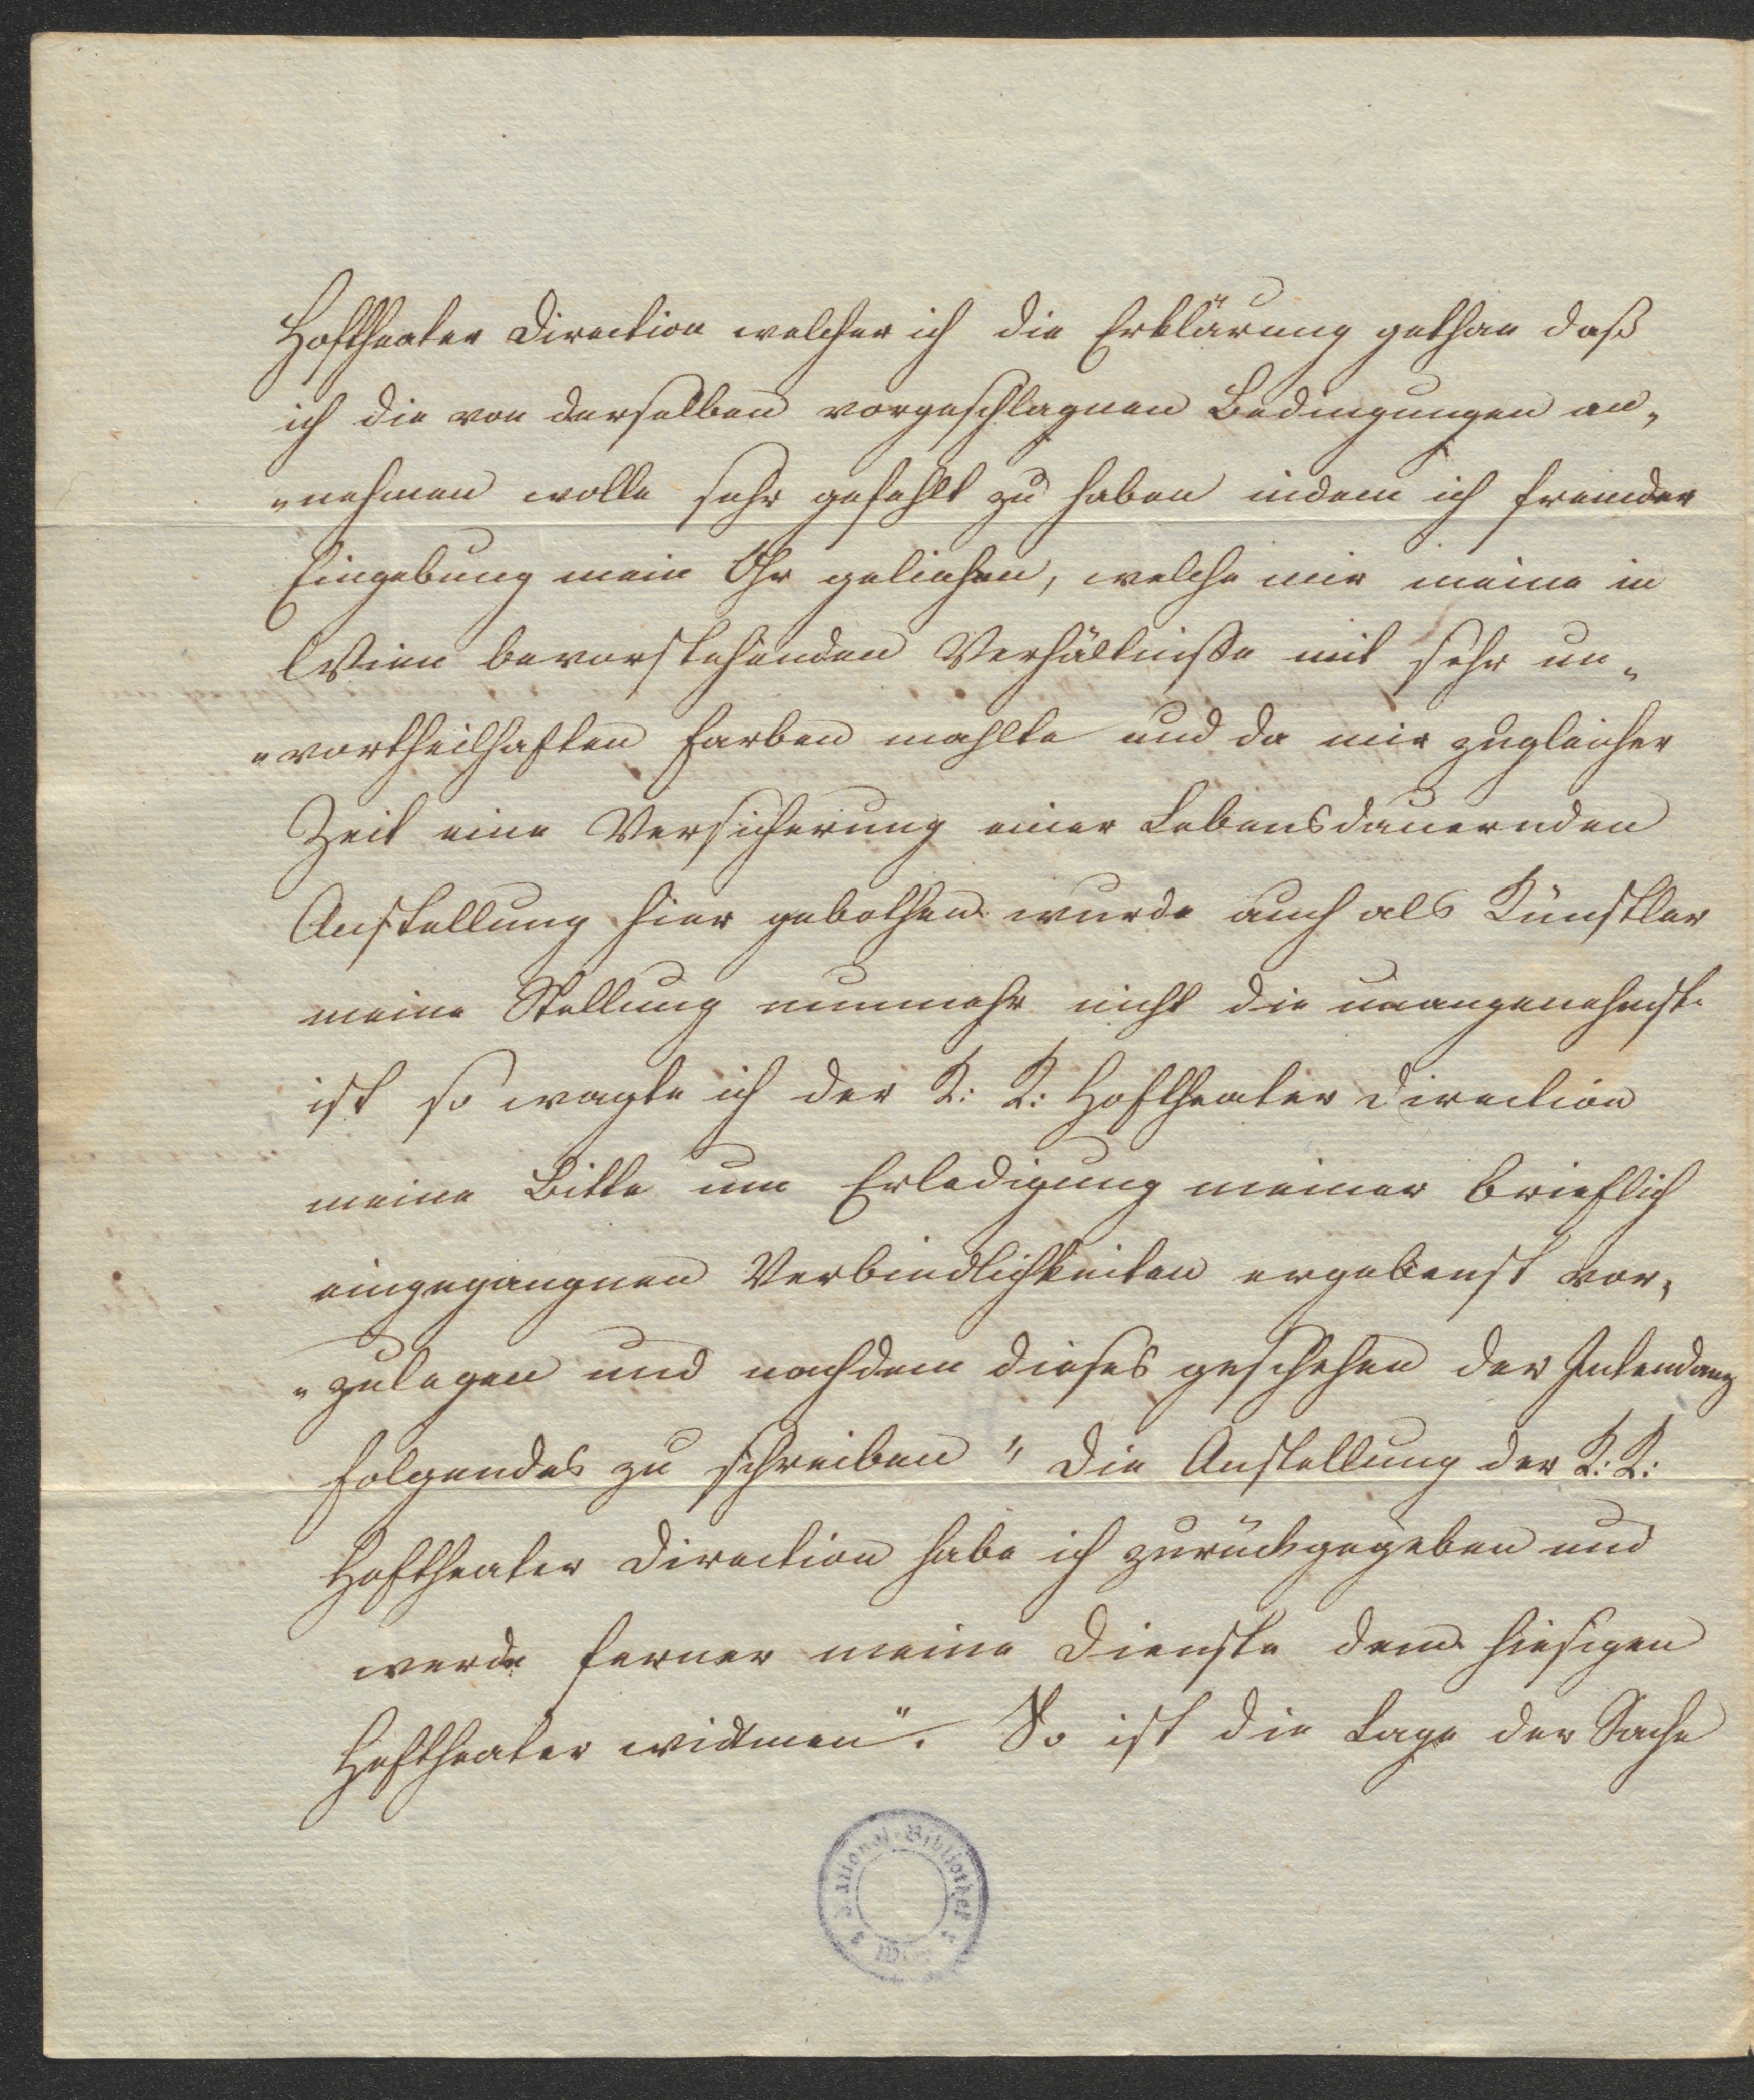 Hoftheater Direction welcher ich die Erklärung gethan daß
ich die von derselben vorgeschlagnen Bedingungen an„
„nehmen wolle sehr gefehlt zu haben indem ich fremder
Eingebung mein Ohr geliehen, welche mir meine in
Wien bevorstehenden Verhältniße mit sehr un„
„vortheilhaften Farben mahlte und da mir zugleicher
Zeit eine Versicherung einer Lebensdauernden
Anstellung hier gebothen wurde auch als Künstler
meine Stellung nunmehr nicht die unangenehmste
ist so wagte ich der K: K: Hoftheater Direction
meine Bitte um Erledigung meiner brieflich
eingegangnen Verbindlichkeiten ergebenst vor„
„zulegen und nachdem dieses geschehen der Intendanz
folgendes zu schreiben " Die Anstellung der K: K:
Hoftheater Direction habe ich zurückgegeben und
werde ferner meine Dienste dem hiesigen
Hoftheater widmen". So ist die Lage der Sache
National-Bibliothek